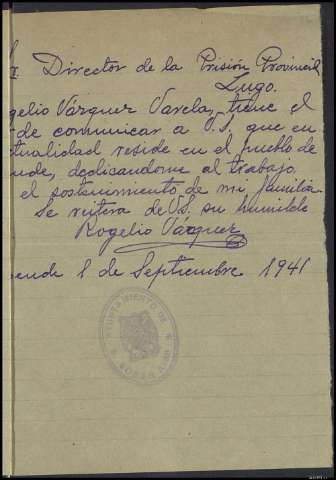 Sr. Director de la Prisión Provincial
Lugo.
gelio Vázquez Varela, tiene el
de comunicar a V.S, que en
ctualidad reside en el pueblo de
ende, dedicandome al trabajo,
el sostenimiento de mi familia.
Se reitera de VS. su humilde
Rogelio Vázquez
ende 1 de Septiembre 1941
AYUNTAMIENTO DE